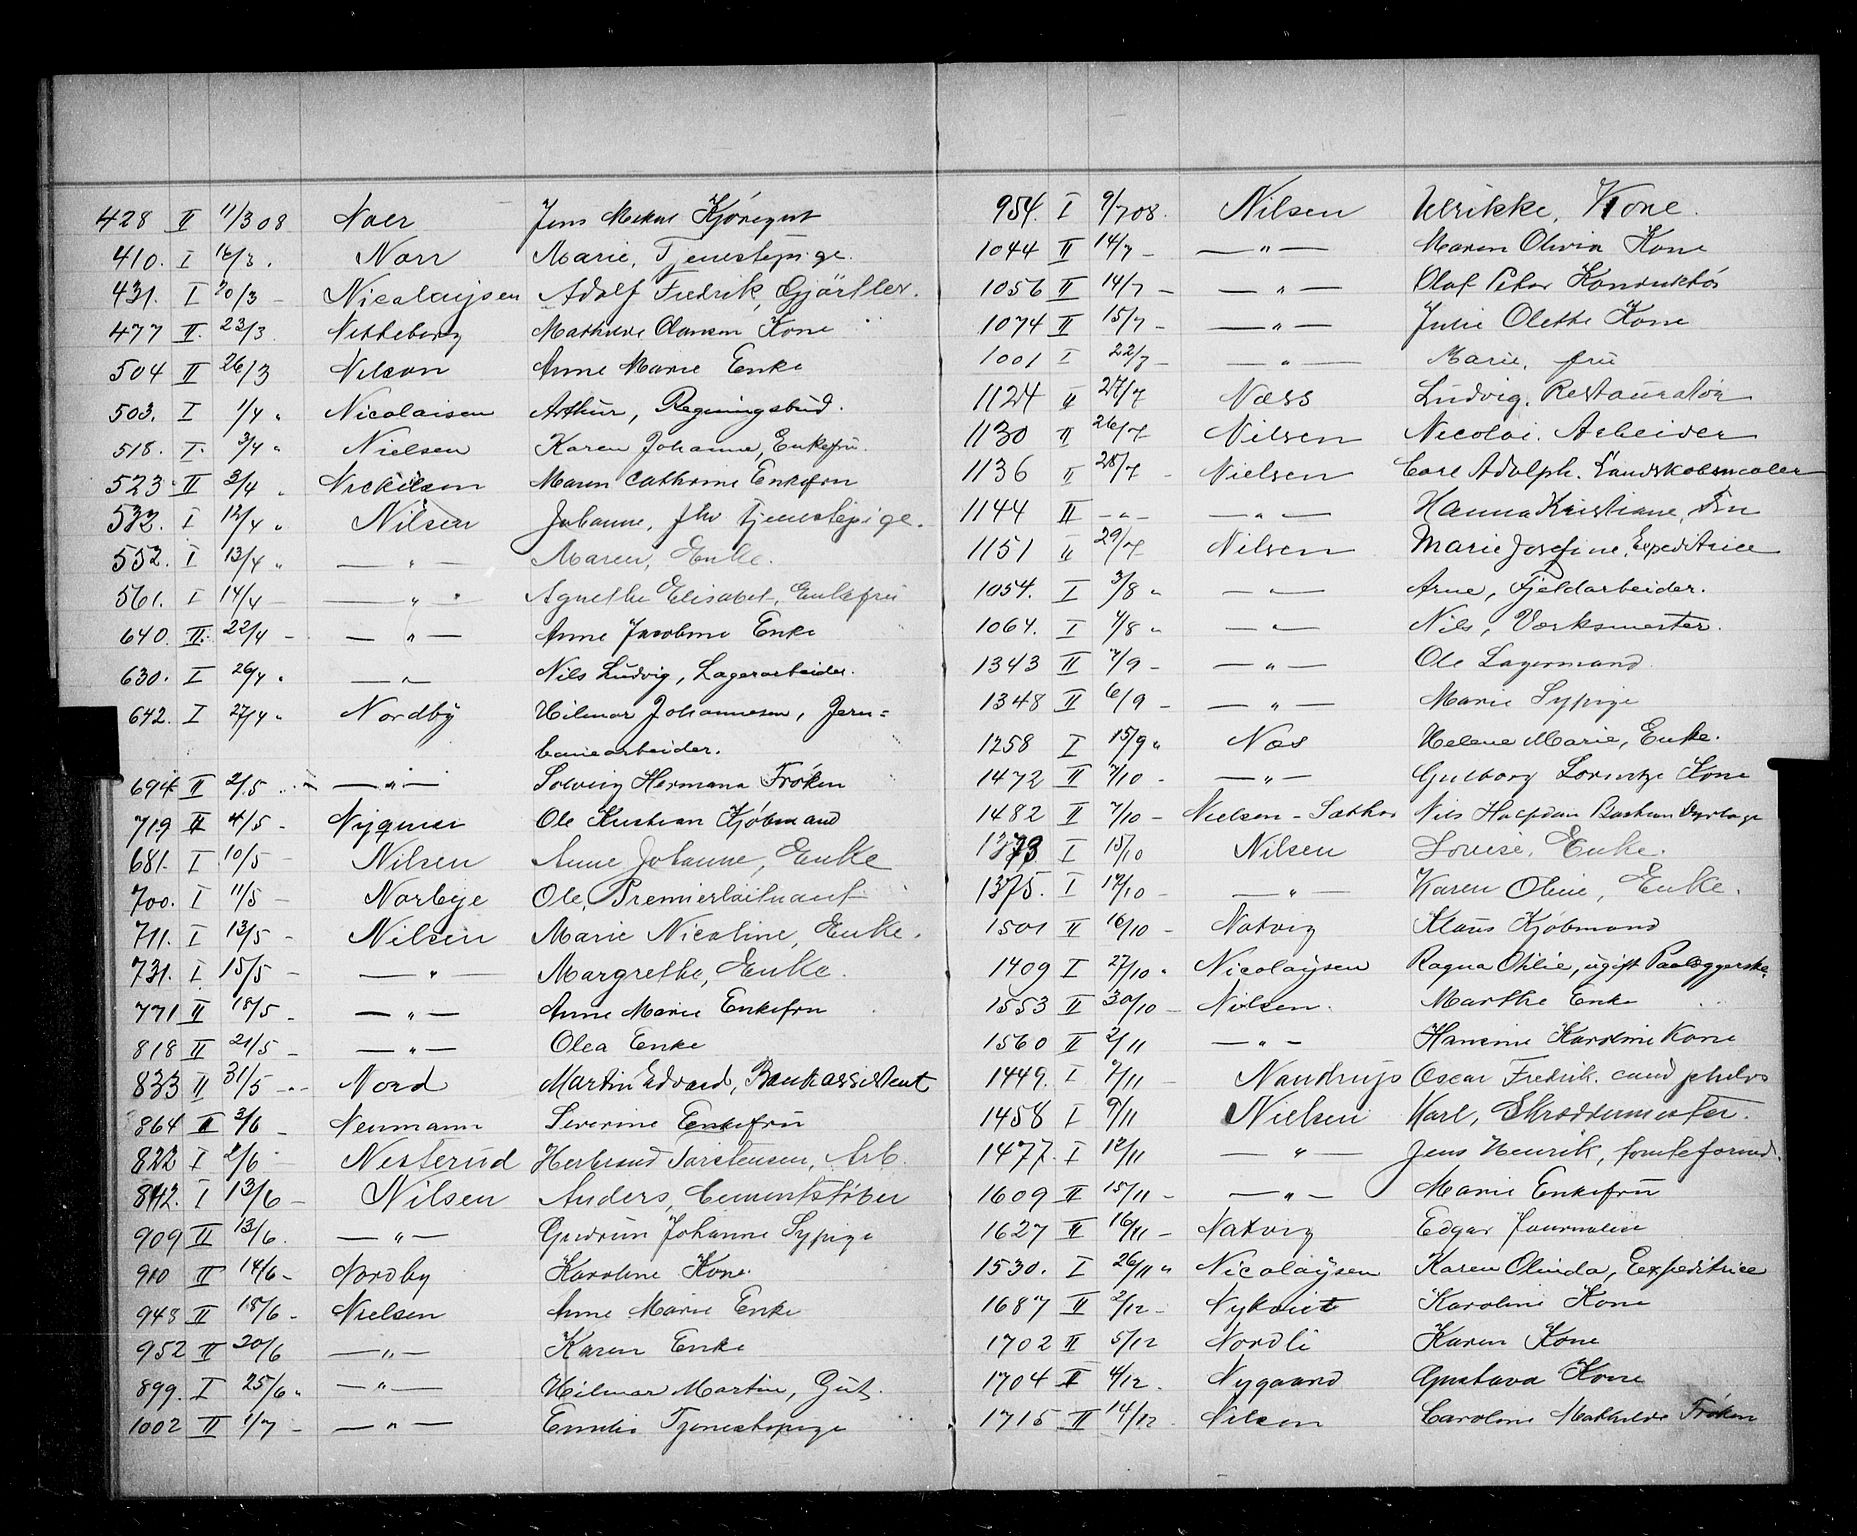 428 II 11/3 08 Naer Jens Kjøregut
410. I 16/3 . Narr Marie, Tjenestepige.
431. I 20/3 - Nicolaysen Adolf Fredrik, Gjørtler.
477 II. 23/3 Nitteberg Mathilde Olausen Kone
504 II 26/3 Nilson Anne Marie Enke
503. I 1/4 " Nicolaisen Arthur, Regningsbud.
518. I. 3/4 " Nielsen Karen Johanne, Enkefru.
523 II 3/4 " Nickelsen Maren Cathrine Enkefru
532. I 12/4 " Nilsen Johanne, fhv tjenestepige.
552. I 13/4 " — " — Maren, Enke.
561. I 14/4 — — " — Agnethe Elisabet, Enkefru
640. II. 22/4 - — " — Anne Jacobine Enke
630. I 26/4 " — " — Nils Ludvig, Lagerarbeider.
642. I 27/4 " Nordby Hilmar Johannesen, Jern=
banearbeider.
694 II 2/5 — " — Solveig Hermana Frøken
719 II 4/5 - Ole Kristian Kjøbmand
681. I 10/5 - Nilsen Anne Johanne, Enke
700. I 11/5 - Norbye Ole, Premierløitnant
711. I 13/5 - Nilsen Marie Nicoline, Enke.
731. I 15/5 - — " — Margrethe, Enke.
771 II 18/5 - — " — Anne Marie Enkefru
818 II 21/5 - — " — Olea Enke
833 II 31/5 - Nord Martin Edvard, Bankassistent
864 II 3/6 - Neumann Severine Enkefru
822 I 2/6 - Nesterud Herbrand Torstensen, Arb.
842. I 13/6 - Nilsen Anders, Cementstøber
909 II 13/6. — " — Gudrun Johanne Sypige
910 II 14/6 - Nordby Karoline Kone.
948 II 18/6 - Nielsen Anne Marie Enke
952 II 20/6 — " — Karen Enke
899. I 25/6 " — " — Hilmar Martin, Gut.
1002 II 1/7 - — " — Emilie Tjenestepige
954. I 9/7 08. Nilsen Ulrikke, Kone.
1044 II 14/7 - — " — Maren Olivia Kone
1056 II 14/7 - — " — Olaf Peter Konduktør
1074 II 15/7 - — " — Julie Olette Kone
1001 I 22/7 — " — Marie, fru
1124 II 27/7 Næss Ludvig, Restauratør
1130 II 26/7 Nilsen Nicolai. Arbeider
1136 II 28/7 - Nielsen Carl Adolph. Landskabsmaler
1144 II - " - — " — Hanna Kristiane, Fru
1151 II 29/7 Nilsen Marie Josefine, Expeditrice
1054. I 3/8 " — " — Arne, Fjeldarbeider.
1064. I 4/8 " — " — Nils, Værksmester.
1343 II 7/9 - — " — Ole Lagermand
1348 II 6/9 - — " — Marie Sypige
1258 I 15/9 " Næs Helene Marie, Enke.
1472 II 7/10 - — " — Gulborg Lorentze Kone
1482 II 7/10 - Nielsen - Nils Halfdan
1373 I 15/10 Nilsen Lovise, Enke.
1375. I 17/10 - — " — Karen Oline, Enke.
1501 II 16/10 - Natvig Klaus Kjøbmand
1409 I 27/10 " Nicolaysen Ragna Otilie, ugift Paalæggerske.
1553 II 30/10 - Nilsen. Marthe Enke
1560 II 2/11 — " — Hansine Karoline Kone
1449. I 7/11 - Nandrup Oscar Fredrik. cand philos
1458 I 9/11 Nielsen Karl, Skræddermester.
1477. I 12/11 — " — Jens Henrik,
1609 II 15/11 - — " — Marie Enkefru
1627 II 16/11 - Natvig Edgar Journalist
1530. I 26/11 " Nicolaysen Karen Olinda, Expeditrice
1687 II 2/12 - Nykvist Karoline Kone
1702 II 5/12 Nordli Karen Kone
1704 II 4/12. Nygaard Gustava Kone
1715 II 14/12 - Nilsen Caroline Mathilde Frøken